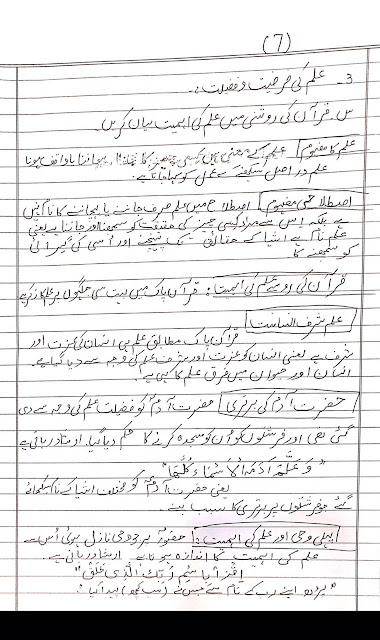 (7)
3- علم کی فرضیت و فضیلت:۔
س۔ قرآن کی روشنی میں علم کی اہمیت بیان کریں۔
علم کا مفہوم علم کے معنی ہیں کسی چیز کا جاننا، پہچاننا یا واقف ہونا
علم دراصل سیکھنے کے عمل کو کہا جاتا ہے۔
اصطلاحی مفہوم اصطلاح میں علم صرف جاننے یا پہچاننے کا نام نہیں
ہے بلکہ اس سے مراد کسی چیز کی حقیقت کو سمجھنا اور جاننا ہے یعنی
علم نام ہے اشیا کے حقائق تک پہنچنے اور اس کی گہرائی
کو سمجھنے کا
قرآن کی رو سے علم کی اہمیت: قرآن پاک میں بہت سی جگہوں پر علم کا ذکر ہے
علم شرف انسانیت
قرآن پاک مطابق علم ہی انسان کی عزت اور
شرف ہے یعنی انسان کو عزت اور شرف علم کی وجہ سے دیا گیا ہے۔
انسان اور حیوان میں فرق علم کا ہی ہے۔
حضرت آدمؑ کی برتری حضرت آدمؑ کو فضیلت علم کی وجہ سے دی
گئی تھی اور فرشتوں کو ان کو سجدہ کرنے کا حکم دیا گیا۔ ارشاد ربانی ہے
"وَعَلَّمَ اٰدَمَ الْاَسْمَاءَ كُلَّهَا"
یعنی حضرت آدمؑ کو مختلف اشیا کے نام سکھائے
گئے جو فرشتوں پر برتری کا سبب بنے۔
پہلی وحی اور علم کی اہمیت: حضورؐ پر جو وحی نازل ہوئی اُس سے
علم کی اہمیت کا اندازہ ہو جاتا ہے۔ ارشاد ربانی ہے۔
"اِقْرَاْ بِاسْمِ رَبِّكَ الَّذِیْ خَلَقَ"
"پڑھ اپنے رب کے نام سے جس نے (سب کچھ) پیدا کیا"